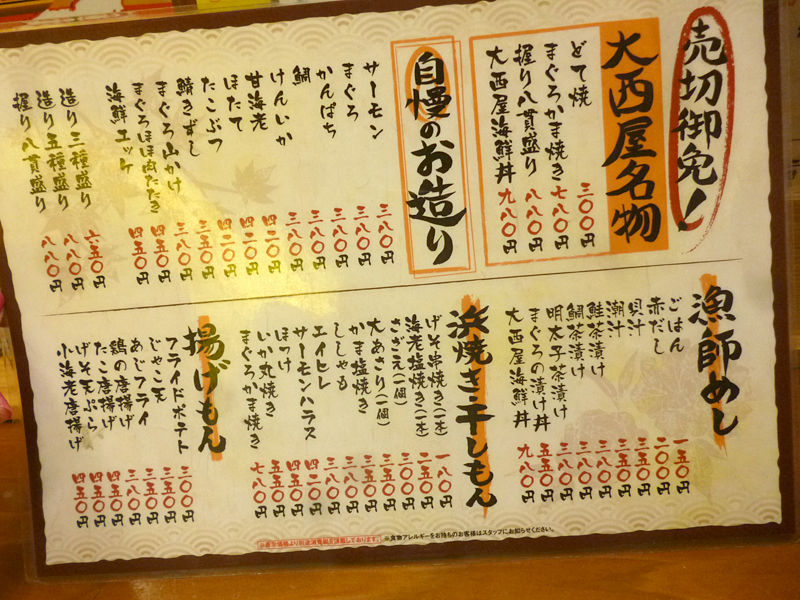 売切御免!
大西屋名物
どて焼 三〇〇円
まぐろかま焼き 七八〇円
握り八貫盛り 八八〇円
大西屋海鮮丼 九八〇円
自慢のお造り
サーモン 三八〇円
まぐろ 三八〇円
かんぱち 三八〇円
鯛 三八〇円
けんいか 三八〇円
甘海老 四二〇円
ほたて 四二〇円
たこぶつ 四二〇円
鯖きずし 三五〇円
まぐろ山かけ 三八〇円
まぐろほほ肉たたき 四五〇円
海鮮ユッケ 四五〇円
造り三種盛り 六五〇円
造り五種盛り 八八〇円
握り八貫盛り 八八〇円
漁師めし
ごはん 一五〇円
赤だし 二〇〇円
貝汁 三五〇円
潮汁 三五〇円
鮭茶漬け 三八〇円
鯛茶漬け 三八〇円
明太子茶漬け 三八〇円
まぐろの漬け丼 五五〇円
大西屋海鮮丼 九八〇円
浜焼き・干しもん
げそ串焼き(一本) 一八〇円
海老塩焼き(一本) 二五〇円
さざえ(一個) 三〇〇円
大あさり(一個) 三五〇円
かま塩焼き 三八〇円
ししゃも 三五〇円
エイヒレ 三八〇円
サーモンハラス 四二〇円
ほっけ 四五〇円
いか丸焼き 五五〇円
まぐろかま焼き 七八〇円
揚げもん
フライドポテト 三〇〇円
じゃこ天 三五〇円
あじフライ 三五〇円
鶏の唐揚げ 三八〇円
たこ唐揚げ 四五〇円
げそ天ぷら 四五〇円
小海老唐揚げ 四五〇円
※表示価格より別途消費税を頂戴しております。
※食物アレルギーをお持ちのお客様はスタッフにお知らせください。